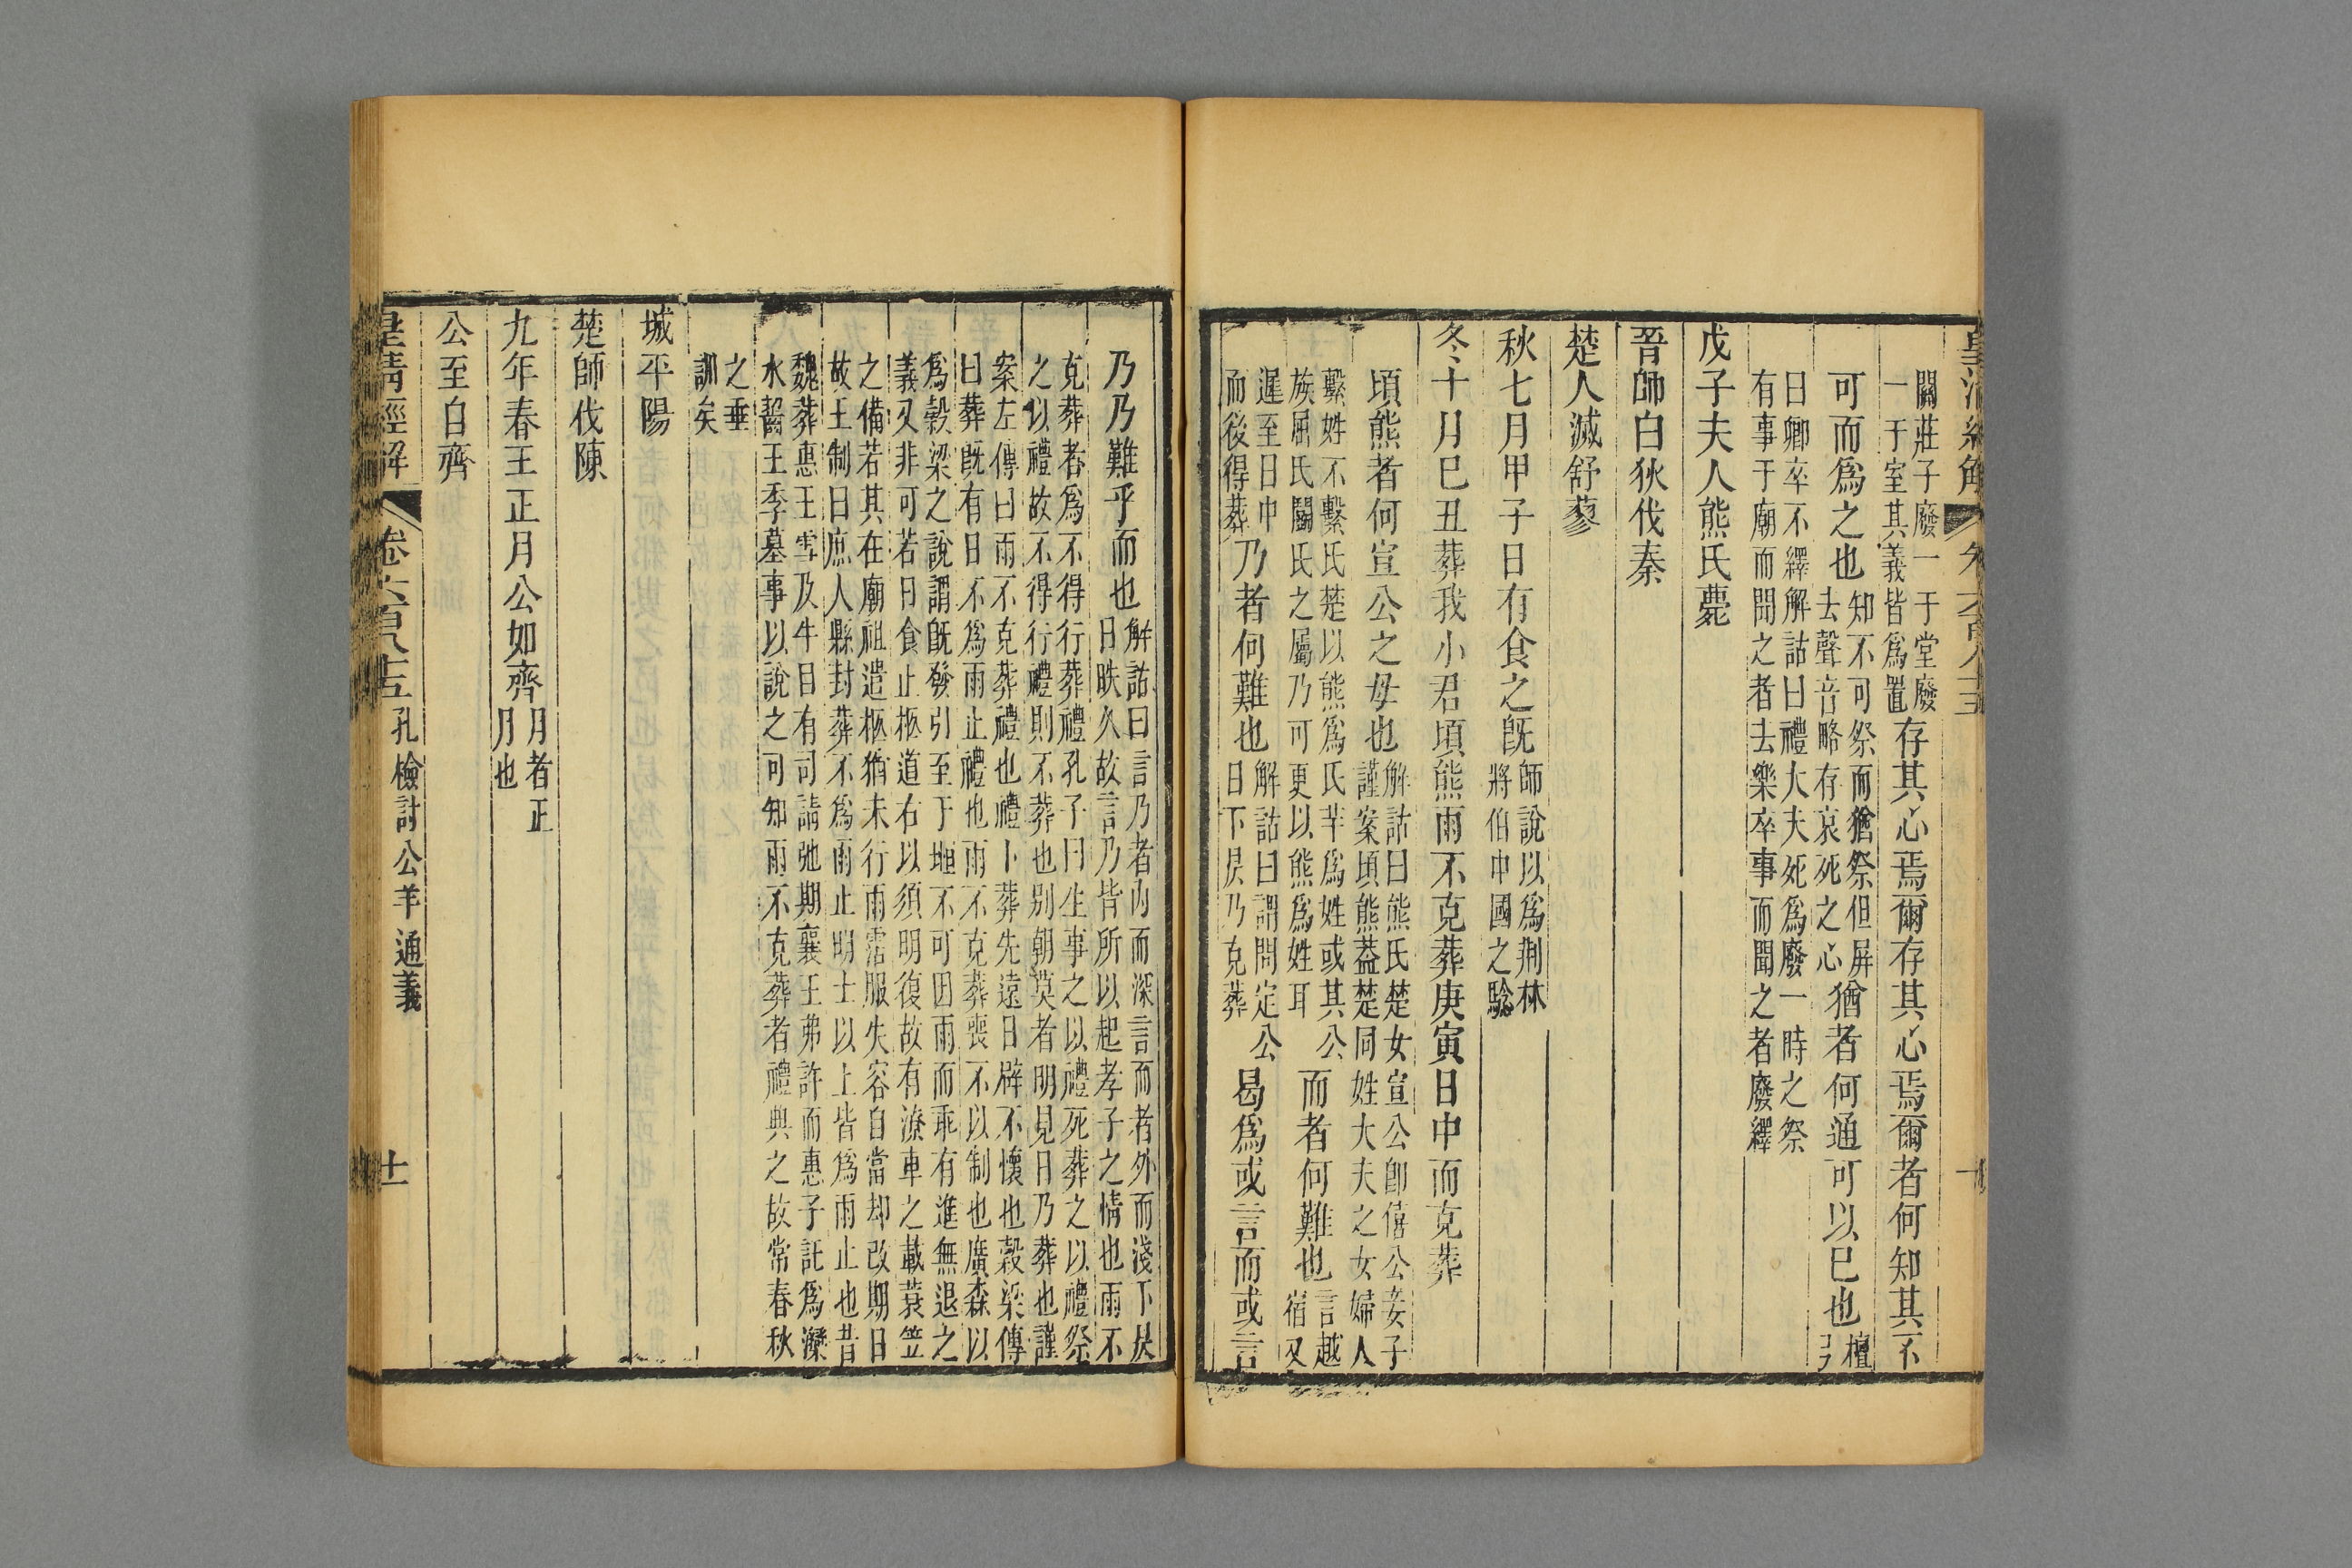 皇清經解
卷六百八十五
闢莊子廢一于堂廢
一于室其義皆爲置
存其心焉爾存其心焉爾者何知其不
可而爲之也
知不可祭而猶祭但屏
去聲音略存哀死之心
猶者何通可以巳也
檀弓
曰卿卒不繹解詁曰禮大夫死爲廢一時之祭
有事于廟而聞之者去樂卒事而聞之者廢繹
戊子夫人熊氏薨
晉師白狄伐秦
楚人滅舒蓼
秋七月甲子日有食之旣
師說以爲荆林
將伯中國之騐
冬十月巳丑葬我小君頃熊雨不克葬庚寅日中而克葬
頃熊者何宣公之母也
解詁曰熊氏楚女宣公卽僖公妾子
謹案頃熊葢楚同姓大夫之女婦人
繫姓不繫氏楚以熊爲氏芈爲姓或其公
族屈氏鬭氏之屬乃可更以熊爲姓耳
而者何難也
言越
宿又
遲至日中
而後得葬
乃者何難也
解詁曰謂問定公
日下昃乃克葬
曷爲或言而或言
乃乃難乎而也
解詁曰言乃者内而深言而者外而淺下昃
日昳久故言乃皆所以起孝子之情也雨不
克葬者爲不得行葬禮孔子曰生事之以禮死葬之以禮祭
之以禮故不得行禮則不葬也别朝莫者明見日乃葬也謹
案左傳曰雨不克葬禮也禮卜葬先遠日辟不懷也穀梁傳
曰葬旣有日不爲雨止禮也雨不克葬喪不以制也廣森以
爲穀梁之說謂旣發引至于堩不可因雨而乖有進無退之
義又非可若日食止柩道右以須明復故有潦車之載蓑笠
之備若其在廟祖遣柩猶未行雨霑服失容自當却改期日
故王制曰庶人縣封葬不爲雨止明士以上皆爲雨止也昔
魏葬惠王雪及牛目有司請弛期襄王弗許而惠子託爲灓
水齧王季墓事以說之可知雨不克葬者禮典之故常春秋
之垂
訓矣
城平陽
楚師伐陳
九年春王正月公如齊
月者正
月也
公至自齊
皇清經解
卷六百八十五
孔檢討公羊通義
十一